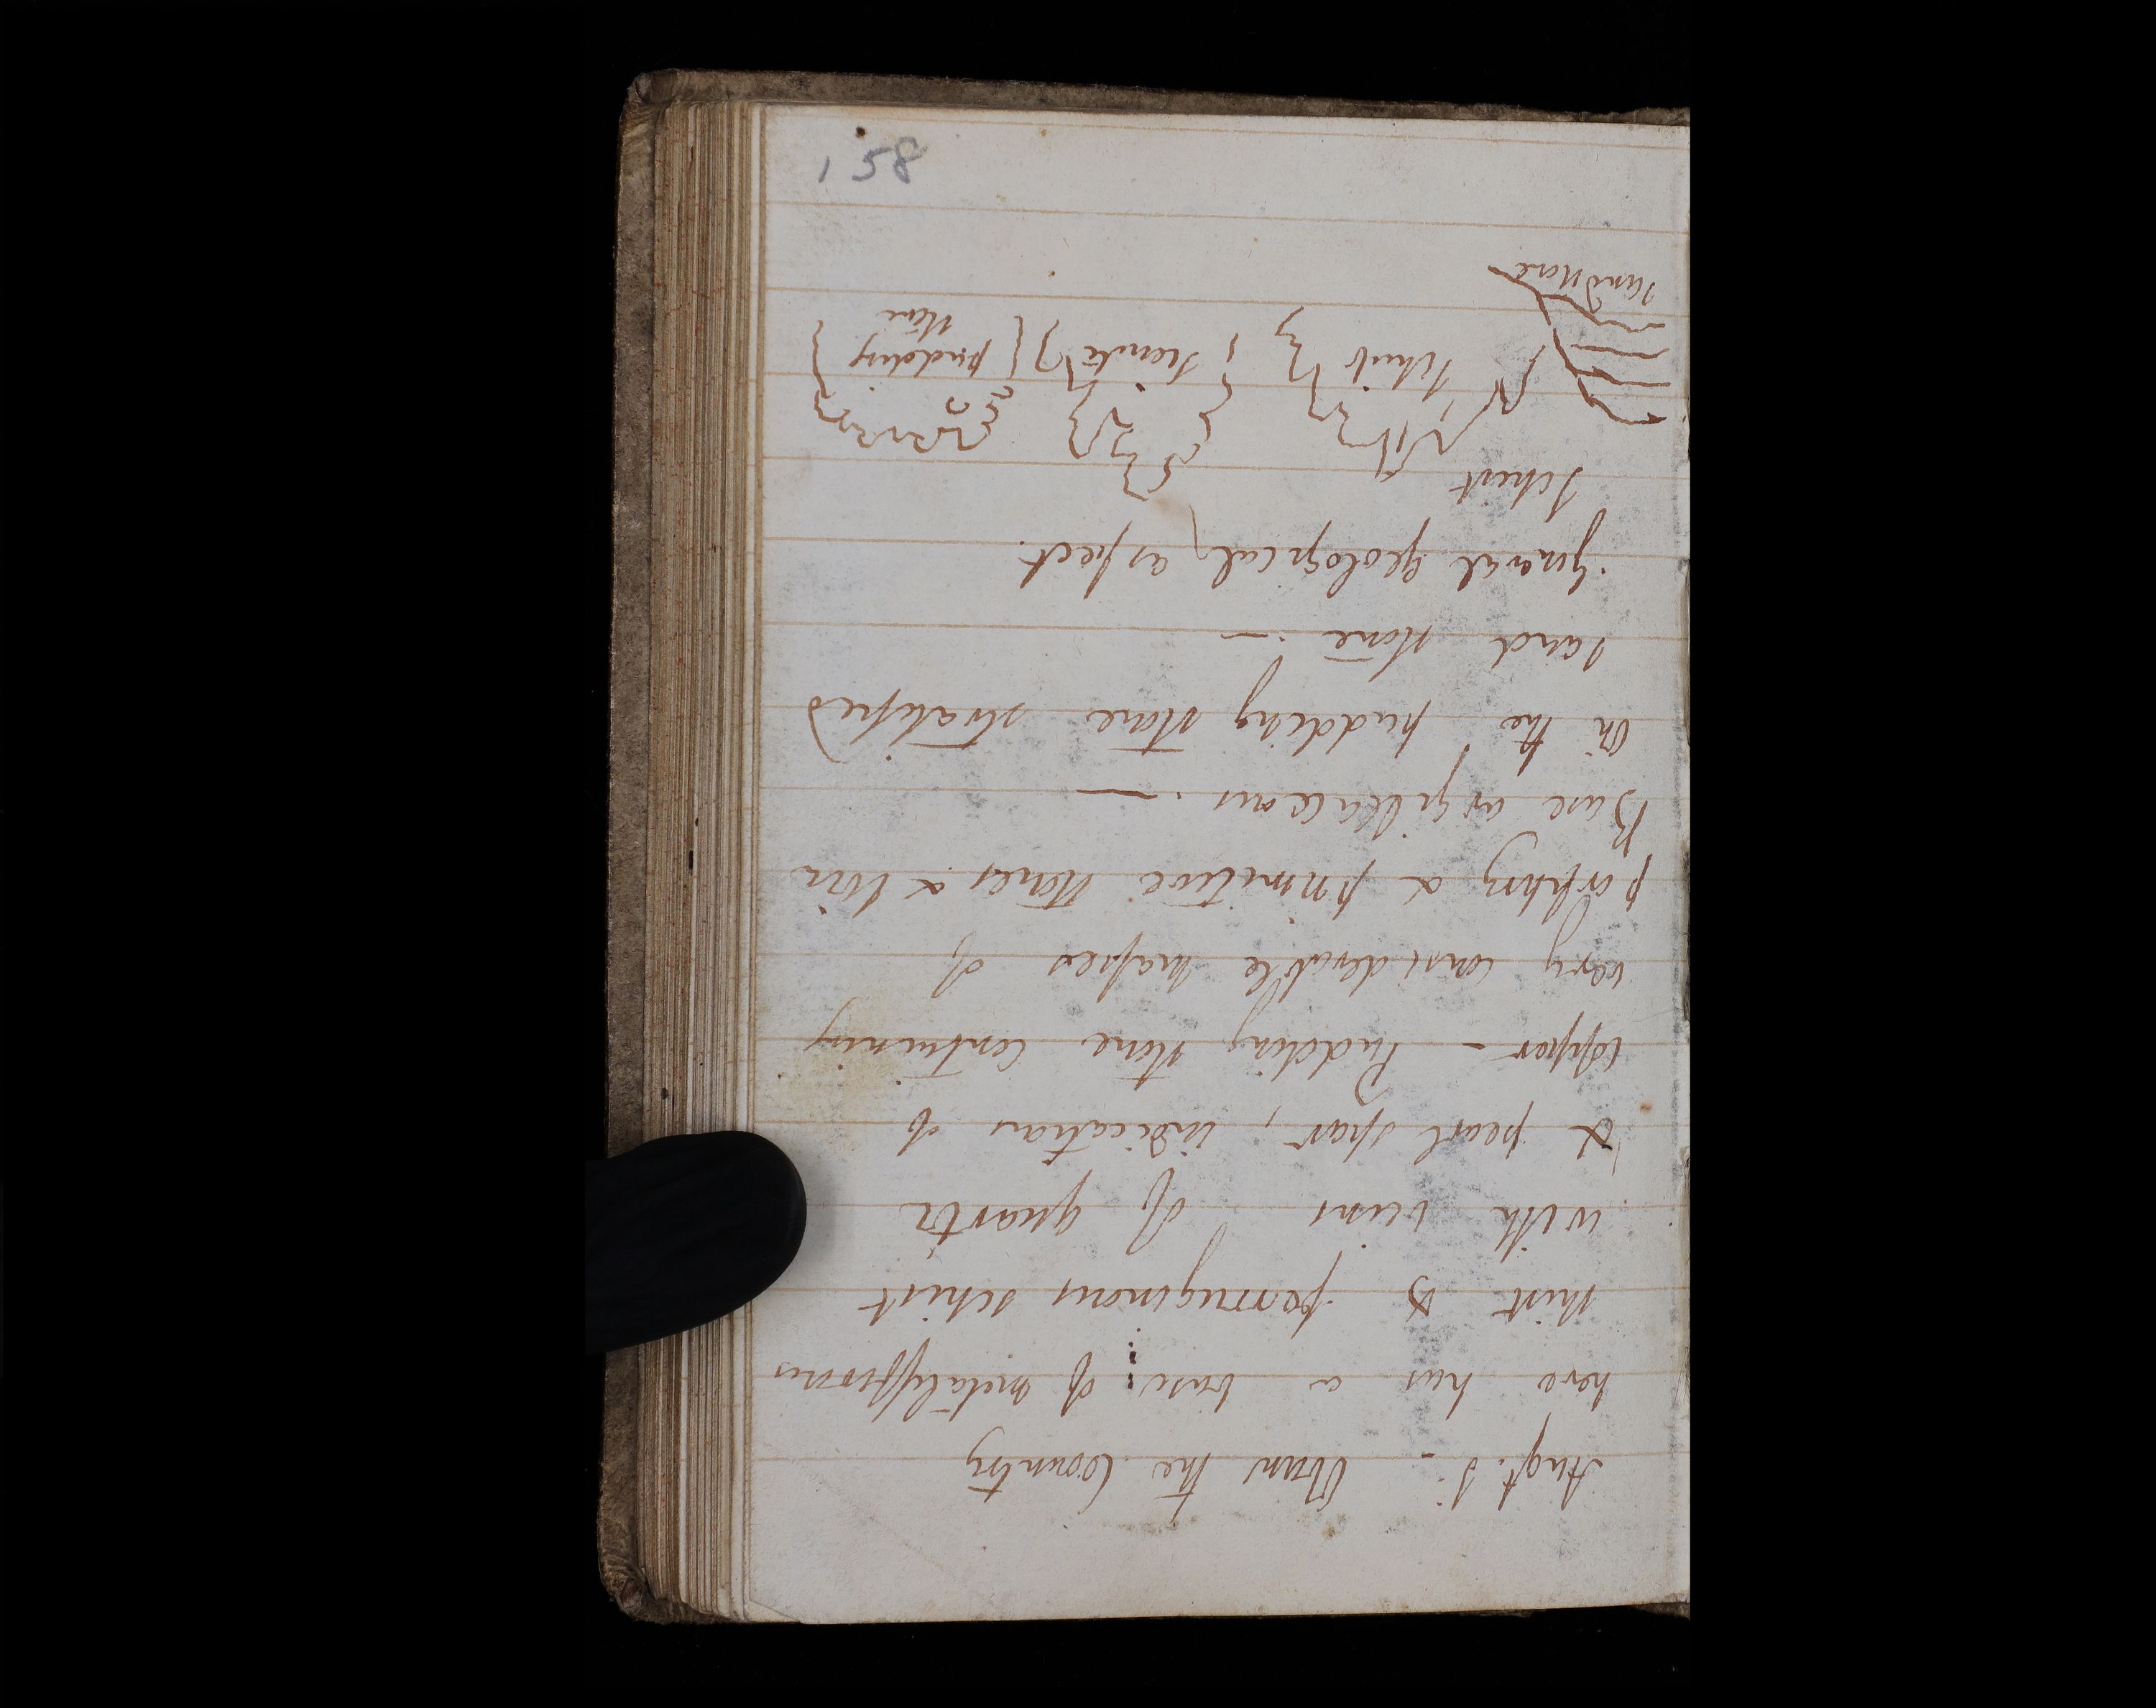 Augt. 5. - Oban the Country
here has a base of metalliferous
shist & ferruginous schist
with veins of quartz
& pearl spar, indication of
copper - Pudding stone containing
very considerable masses of
porphyry & primitive stones &
Base argillaceous. —
On the pudding stone stratified
sand stone. —
General geological, aspect.
Schist
Schist
Sienite
pudding
stone
sandstone
158